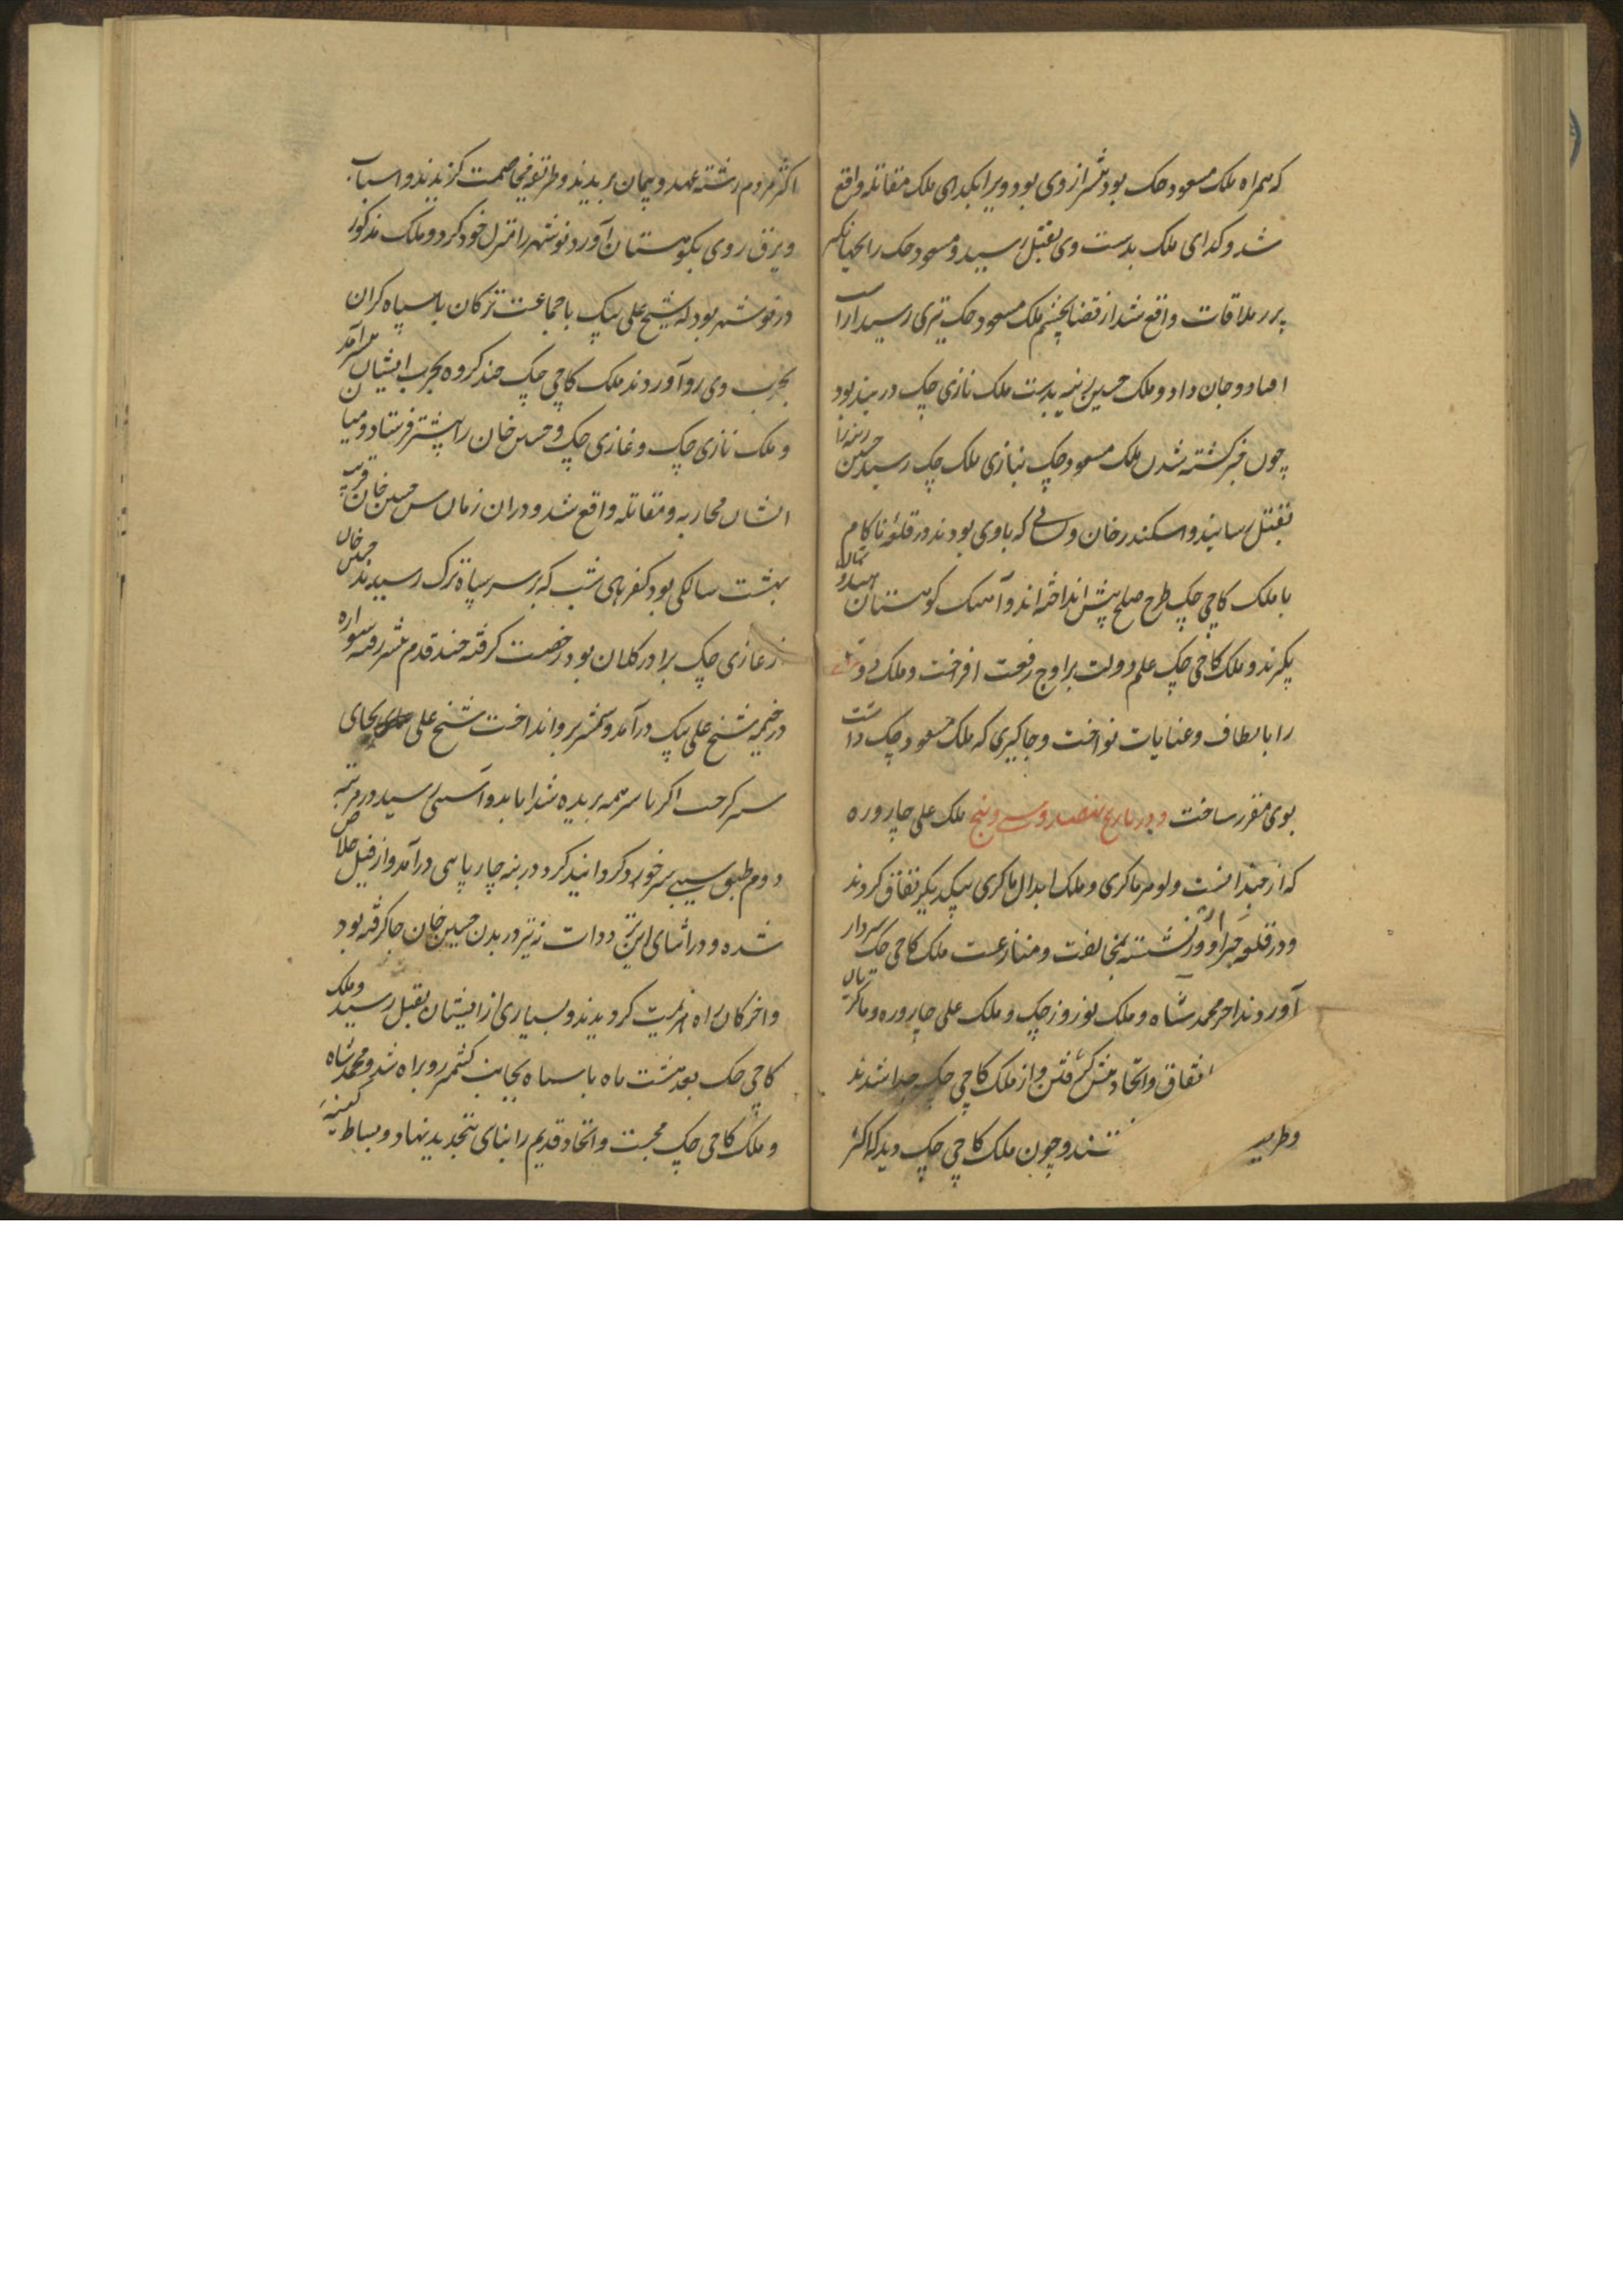 که همراه ملک مسعود چک بود شمشیر از وی بود ویرا بکدای ملک مقاتله واقع
شد و کدای ملک بدست وی بقتل رسید و مسعود چک را بجهانگیر
پدر ملاقات واقع شد از قضا بچشم ملک مسعود چک تیری رسید از آن
افتاد و جان داد و ملک حسین رینه بدست ملک نازی چک در بند بود
چون خبر کشته شدن ملک مسعود چک بنازی ملک چک رسید حسین رینه را
بقتل رسانید و اسکندر خان و که باوی بودند در قلعه ناکام
با ملک کاجی چک طرح صلح پیش انداخته اند و آهنک کوهستان
بکیرند و ملک کاجی چک علم دولت براوج رفعت افراخت و ملک
را بالطاف و عنایات نواخت و جاکیری که ملک مسعود چک داشت
بوی مقرر ساخت و در تاریخ نهصد و سی و پنج ملک علی چاروره
که از و لوهر ماکری و ملک ابدال ماکری بیکدیکر نفاق کردند
و در قلعه نشسته بمخالفت و منازعت ملک کاجی چک سر دار
آوردند آخر محمد شاه و ملک نوروز چک و ملک علی چاروره و ماکریان
اتفاق و اتحاد پیش کرفتن و از ملک کاجی چک جدا شدند
وطریـ تند و چون ملک کاجی چک دید که اکثر
اکثر مردم رشته عهد و پیمان بریدند و طریقه مخاصمت کزیدند و اسباب
ویرق روی بکوهستان آورد نوشهر را منزل خود کرد و ملک مذکور
در نوشهر بود که شیخ علی بیک با جماعت ترکان با سپاه کران
بحرب وی رو آوردند ملک کاجی چک چند کروه بحرب ایشان بر آمد
و ملک نازی چک و غازی چک و حسین خان را پیشتر فرستاد و میان
ایشان محاربه و مقاتله واقع شد و دران زمان سن حسین خان قریب
بهشت سالکی بود کفر های شب که بر سر سپاه ترک رسیدند حسین خان
از غازی چک برادر کلان بود رخصت کرفته چند قدم پیشتر رفته سواره
در خیمه شیخ علی بیک در آمد و شمشیر برو انداخت شیخ علی بجای
سر اکر با سر همه بریده شد اما بدو آسیبی رسید در مرتبه
دوم طبق سیبی سر خود کردانید کرد در بنه چارپایی در آمد و از قتل خلاص
شده و در اثنای این ترددات نه تیر در بدن حسین خان جا کرفته بود
و آخر کار راه هزیمت کردیدند و بسیاری از ایشان بقتل رسید و ملک
کاجی چک بعد هشت ماه با سپاه بجانب کشمیر رو براه شد و محمد شاه
و ملک کاجی چک محبت و اتحاد قدیم را بنای تجدید نهاد و بساط کینه